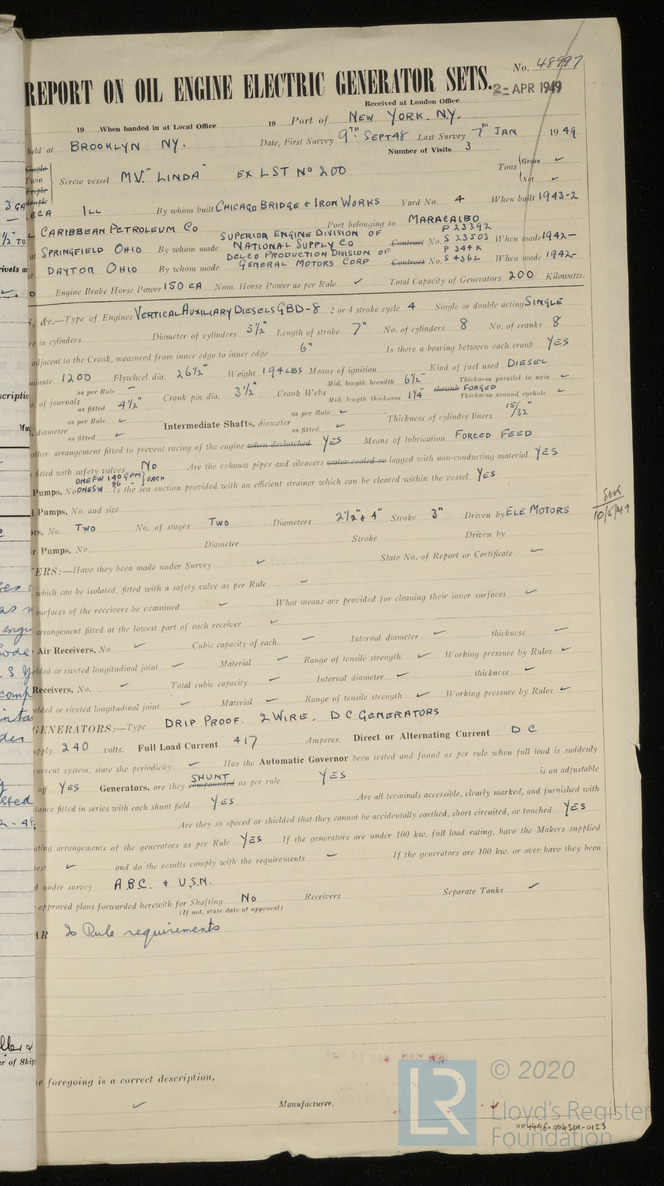 REPORT ON OIL ENGINE ELECTRIC GENERATOR SETS.
No. 48997
2 - APR 1949
Received at London Office
19 When handed in at Local Office 19 Port of NEW YORK. N.Y.
Held at BROOKLYN NY. Date, First Survey 9TH SEPT 48 Last Survey 7TH JAN 1949
Number of Visits 3
Single
Twin
Triple
Screw vessel M.V. "LINDA" EX LST No 200 Tons Gross ✓
Net ✓
ECA ILL By whom built CHICAGO BRIDGE & IRON WORKS Yard No. 4 When built 1943-2
CARIBBEAN PETROLEUM CO Port belonging to MARACAIBO
SPRINGFIELD OHIO By whom made SUPERIOR ENGINE DIVISION OF NATIONAL SUPPLY CO Contract No. P 23392 S 23503 When made 1942-
DAYTON OHIO By whom made DELCO PRODUCTION DIVISION OF GENERAL MOTORS CORP Contract No. P 344K S 436L When made 1942-
Engine Brake Horse Power 150 EA Nom. Horse Power as per Rule ✓ Total Capacity of Generators 200 Kilowatts.
, &c.—Type of Engines VERTICAL AUXILIARY DIESELS GBD-8 2 or 4 stroke cycle 4 Single or double acting SINGLE
re in cylinders Diameter of cylinders 5½" Length of stroke 7" No. of cylinders 8 No. of cranks 8
adjacent to the Crank, measured from inner edge to inner edge 6" Is there a bearing between each crank YES
minute 1200 Flywheel dia. 26½" Weight 194 LBS Means of ignition Kind of fuel used DIESEL
of journals as per Rule ✓ as fitted 4½" Crank pin dia. 3½" Crank Webs Mid. length breadth 6½" Mid. length thickness 1¼" shrunk FORGED Thickness parallel to axis ✓ Thickness around eyehole ✓
diameter as per Rule ✓ as fitted ✓ Intermediate Shafts, diameter as per Rule ✓ as fitted ✓ Thickness of cylinder liners 15/32"
other arrangement fitted to prevent racing of the engine when declutched YES Means of lubrication FORCED FEED
fitted with safety valves No Are the exhaust pipes and silencers water cooled or lagged with non-conducting material YES
Pumps, No. ONE FW 140 GPM ONE SW 86 " EACH Is the sea suction provided with an efficient strainer which can be cleared within the vessel YES
Pumps, No. and size
rs, No. TWO No. of stages TWO Diameters 2½" & 4" Stroke 3" Driven by ELE MOTORS
r Pumps, No. Diameter Stroke Driven by
ERS:—Have they been made under Survey ✓ State No. of Report or Certificate ✓
which can be isolated, fitted with a safety valve as per Rule ✓
surfaces of the receivers be examined ✓ What means are provided for cleaning their inner surfaces ✓
arrangement fitted at the lowest part of each receiver ✓
Air Receivers, No. ✓ Cubic capacity of each ✓ Internal diameter ✓ thickness ✓
elded or riveted longitudinal joint ✓ Material ✓ Range of tensile strength ✓ Working pressure by Rules ✓
Receivers, No. ✓ Total cubic capacity ✓ Internal diameter ✓ thickness ✓
elded or riveted longitudinal joint ✓ Material ✓ Range of tensile strength ✓ Working pressure by Rules ✓
GENERATORS:—Type DRIP PROOF. 2 WIRE. D C GENERATORS
pply 240 volts. Full Load Current 417 Amperes. Direct or Alternating Current D C
current system, state the periodicity ✓ Has the Automatic Governor been tested and found as per rule when full load is suddenly
off YES Generators, are they compounded SHUNT as per rule YES is an adjustable
tance fitted in series with each shunt field YES Are all terminals accessible, clearly marked, and furnished with
Are they so spaced or shielded that they cannot be accidentally earthed, short circuited, or touched YES
ating arrangements of the generators as per Rule YES If the generators are under 100 kw. full load rating, have the Makers supplied
test ✓ and do the results comply with the requirements ✓ If the generators are 100 kw. or over have they been
d under survey A.B.C. & U.S.N.
approved plans forwarded herewith for Shafting No Receivers Separate Tanks ✓
(If not, state date of approval)
AR To Rule requirements
e foregoing is a correct description,
✓ Manufacturer.
10/5/49
© 2020
LR
Lloyd's Register
Foundation
004496-004501-0123